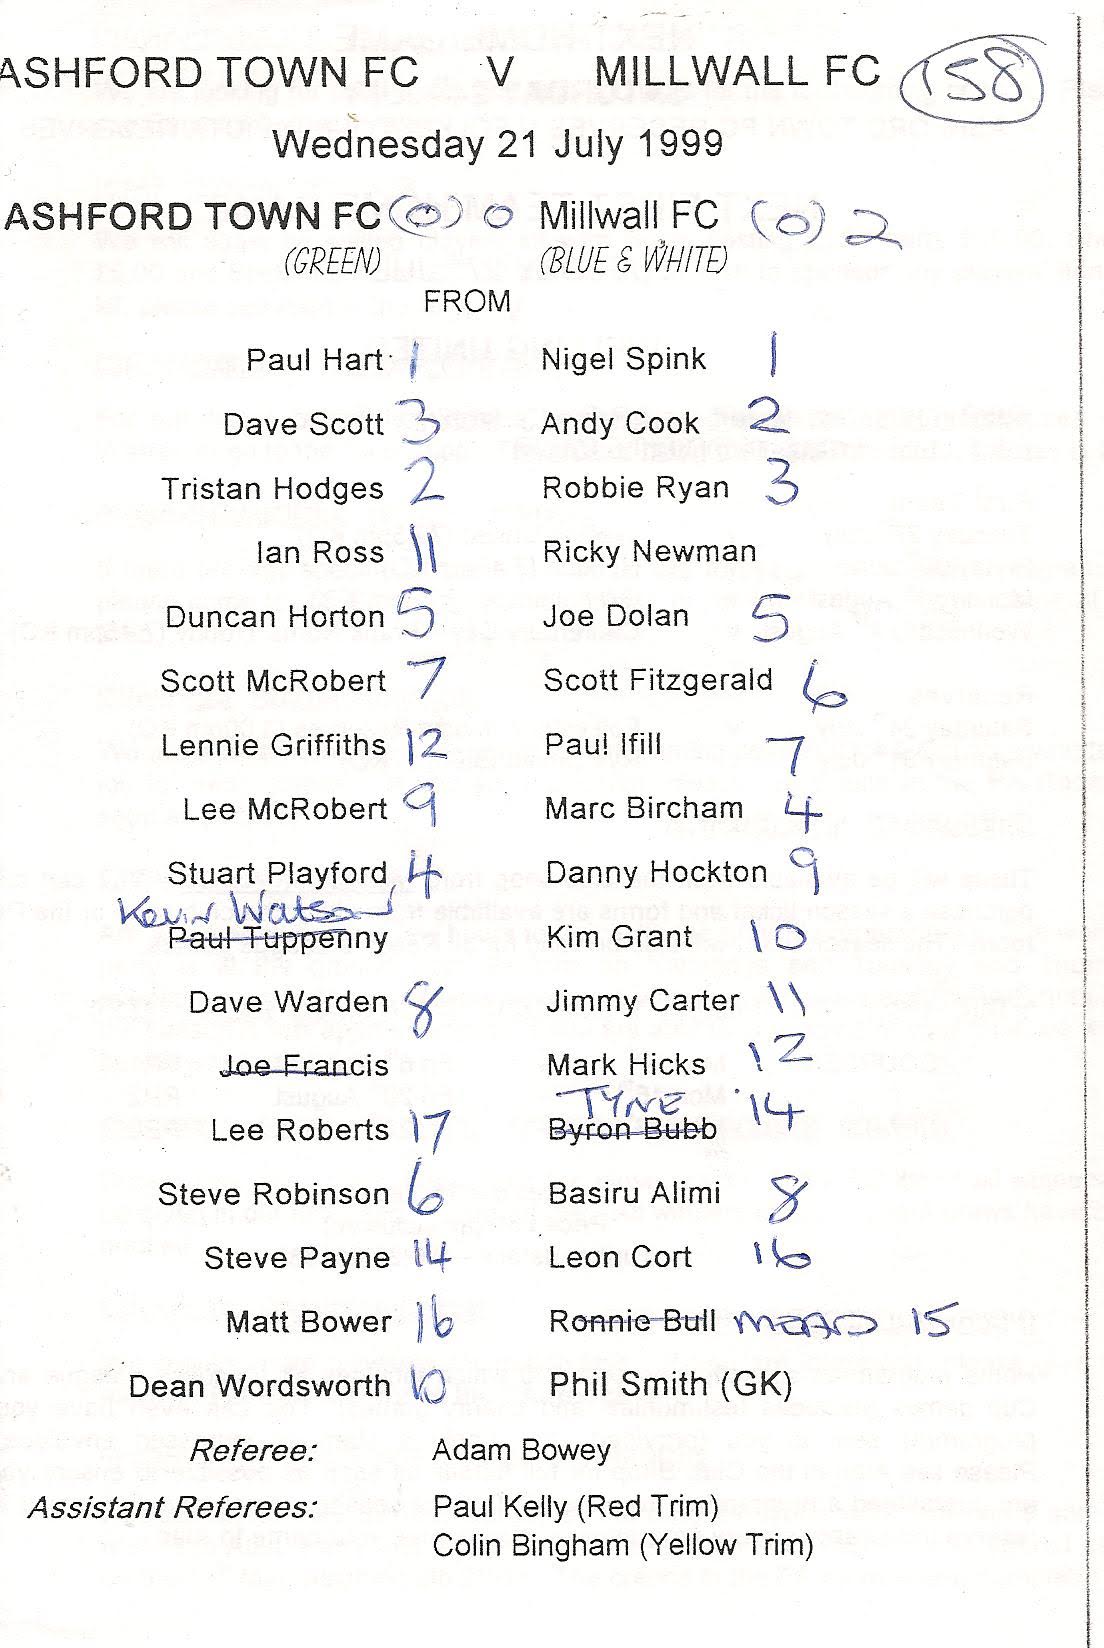 ASHFORD TOWN FC V MILLWALL FC 158
Wednesday 21 July 1999
ASHFORD TOWN FC (0) 0 Millwall FC (0) 2
(GREEN) (BLUE & WHITE)
FROM
Paul Hart 1 Nigel Spink 1
Dave Scott 3 Andy Cook 2
Tristan Hodges 2 Robbie Ryan 3
Ian Ross 11 Ricky Newman
Duncan Horton 5 Joe Dolan 5
Scott McRobert 7 Scott Fitzgerald 6
Lennie Griffiths 12 Paul Ifill 7
Lee McRobert 9 Marc Bircham 4
Stuart Playford 4 Danny Hockton 9
Kevin Watson
Paul Tuppenny Kim Grant 10
Dave Warden 8 Jimmy Carter 11
Joe Francis Mark Hicks 12
TYNE 14
Lee Roberts 17 Byron Bubb
Steve Robinson 6 Basiru Alimi 8
Steve Payne 14 Leon Cort 16
Matt Bower 16 Ronnie Bull MEAD 15
Dean Wordsworth 10 Phil Smith (GK)
Referee: Adam Bowey
Assistant Referees: Paul Kelly (Red Trim)
Colin Bingham (Yellow Trim)